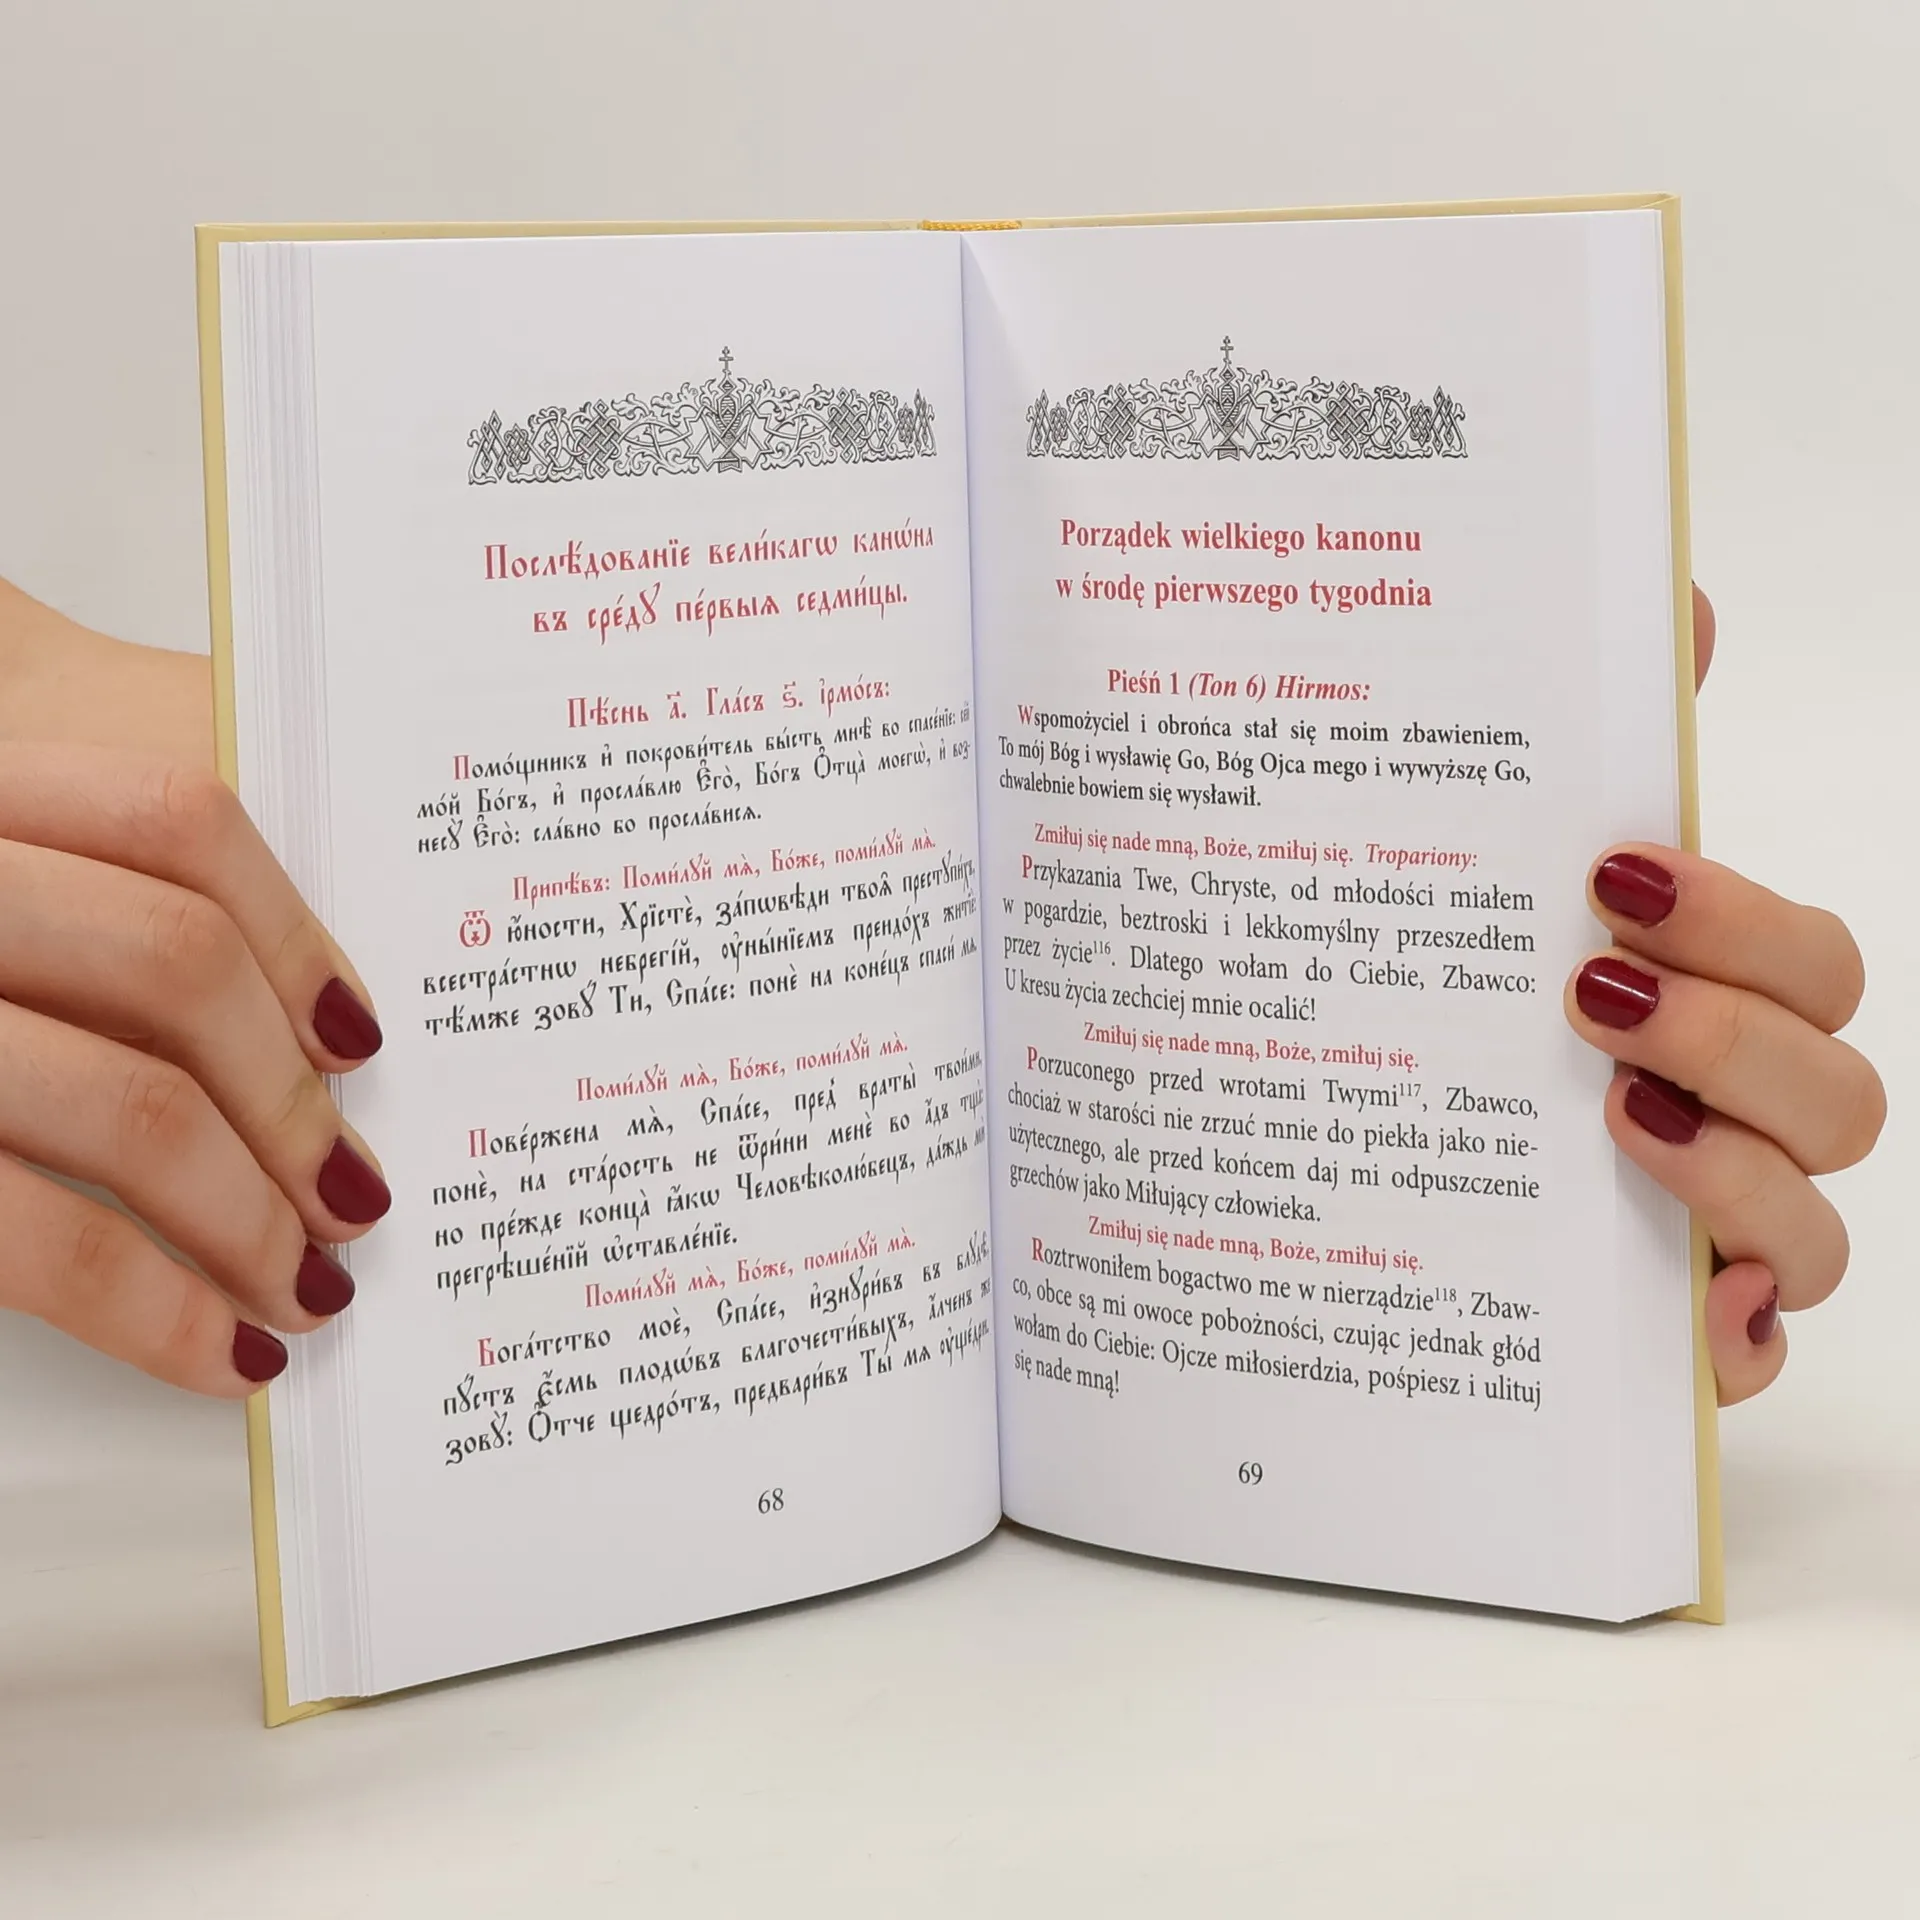 Послѣ́дованїе вели́кагѡ канѡ́на
въ сре́дꙋ пе́рвыѧ седми́цы.
Пѣ́снь а҃. Гла́съ ѕ҃. і҆рмо́съ:
Помо́щникъ и҆ покрови́тель бы́сть мнѣ̀ во спасе́нїе: се́й
мо́й Бо́гъ, и҆ просла́влю Є҆го̀, Бо́гъ Ѻ҆тца̀ моегѡ̀, и҆ воз-
несꙋ̀ Є҆го̀: сла́вно бо просла́висѧ.
Припѣ́въ: Поми́лꙋй мѧ̀, Бо́же, поми́лꙋй мѧ̀.
Ѿ ю҆́ности, Хрїстѐ, за́пѡвѣди твоѧ̑ престꙋпи́хъ,
всестра́стнѡ небрегі́й, ᲂу҆ны́нїемъ преидо́хъ житїѐ:
тѣ́мже зовꙋ́ Ти, Спа́се: понѐ на коне́цъ спаси́ мѧ.
Поми́лꙋй мѧ̀, Бо́же, поми́лꙋй мѧ̀.
Пове́ржена мѧ̀, Спа́се, пред̾ враты̀ твои́ми,
понѐ, на ста́рость не ѿри́ни менѐ во а҆́дъ тща̀:
но пре́жде конца̀ ꙗ҆́кѡ Человѣколю́бецъ, да́ждь мѝ
прегрѣше́нїй ѡ҆ставле́нїе.
Поми́лꙋй мѧ̀, Бо́же, поми́лꙋй мѧ̀.
Бога́тство моѐ, Спа́се, и҆знꙋри́въ въ блꙋдѣ̀,
пꙋ́стъ є҆́смь плодѡ́въ благочести́выхъ, а҆́лченъ же
зовꙋ̀: Ѻ҆́тче щедро́тъ, предвари́въ Ты́ мѧ ᲂу҆ще́дри.
68
Porządek wielkiego kanonu
w środę pierwszego tygodnia
Pieśń 1 (Ton 6) Hirmos:
Wspomożyciel i obrońca stał się moim zbawieniem,
To mój Bóg i wysławię Go, Bóg Ojca mego i wywyższę Go,
chwalebnie bowiem się wysławił.
Zmiłuj się nade mną, Boże, zmiłuj się. Tropariony:
Przykazania Twe, Chryste, od młodości miałem
w pogardzie, beztroski i lekkomyślny przeszedłem
przez życie¹¹⁶. Dlatego wołam do Ciebie, Zbawco:
U kresu życia zechciej mnie ocalić!
Zmiłuj się nade mną, Boże, zmiłuj się.
Porzuconego przed wrotami Twymi¹¹⁷, Zbawco,
chociaż w starości nie zrzuć mnie do piekła jako nie-
użytecznego, ale przed końcem daj mi odpuszczenie
grzechów jako Miłujący człowieka.
Zmiłuj się nade mną, Boże, zmiłuj się.
Roztrwoniłem bogactwo me w nierządzie¹¹⁸, Zbaw-
co, obce są mi owoce pobożności, czując jednak głód
wołam do Ciebie: Ojcze miłosierdzia, pośpiesz i ulituj
się nade mną!
69